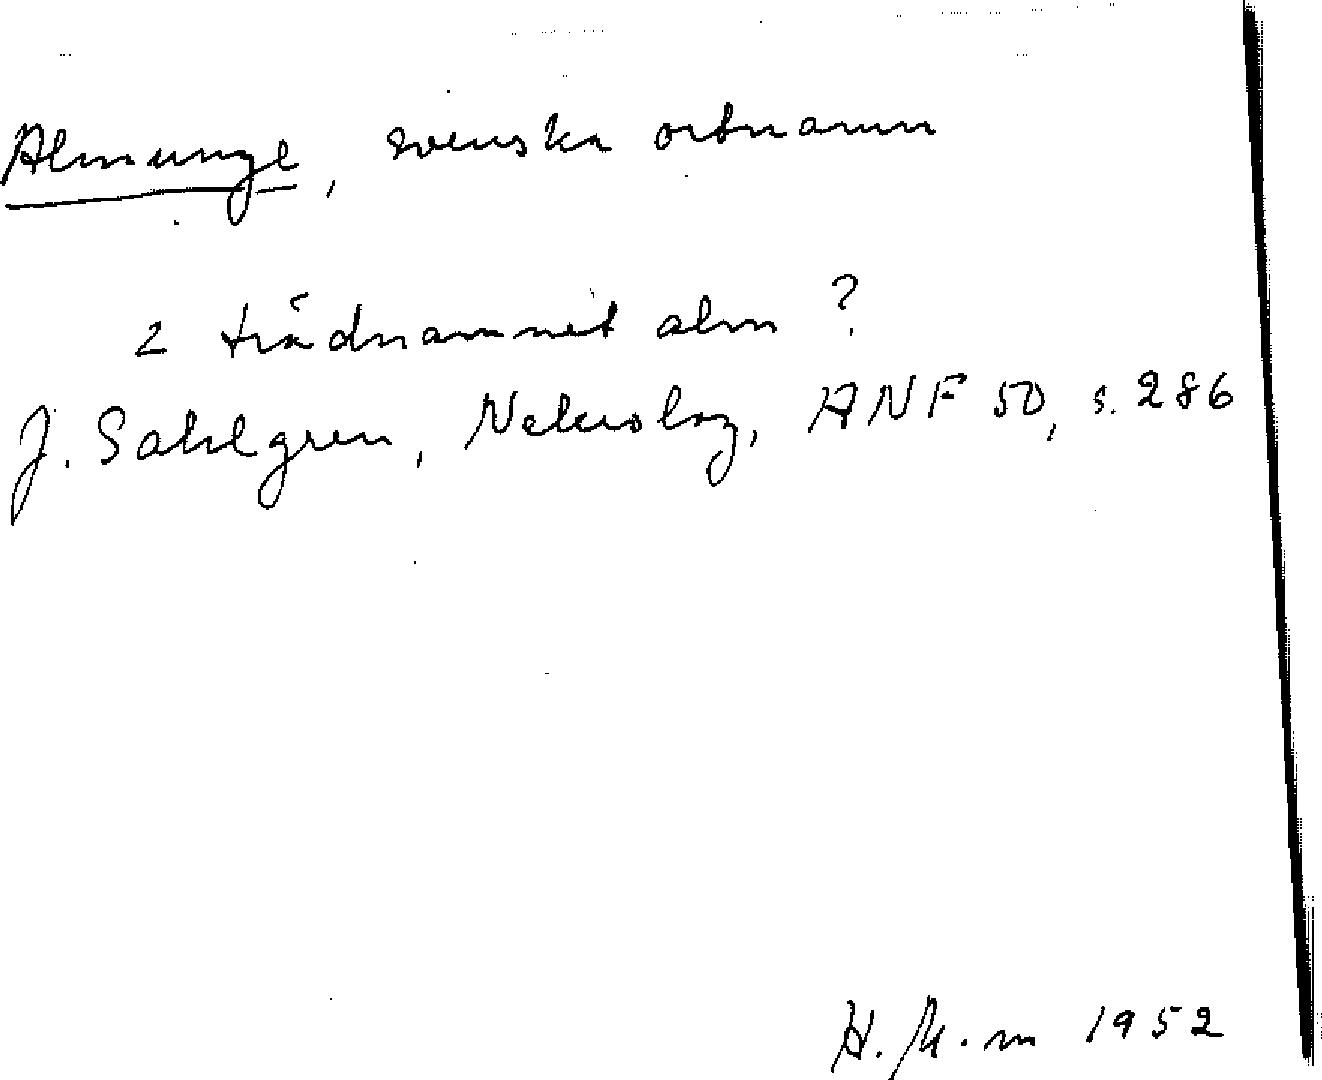 Almunge, svenska ortnamn
2 trädnamnet alm ?
J. Sahlgren, Nekrolog, ANF 50, s. 286
H. M.m 1952